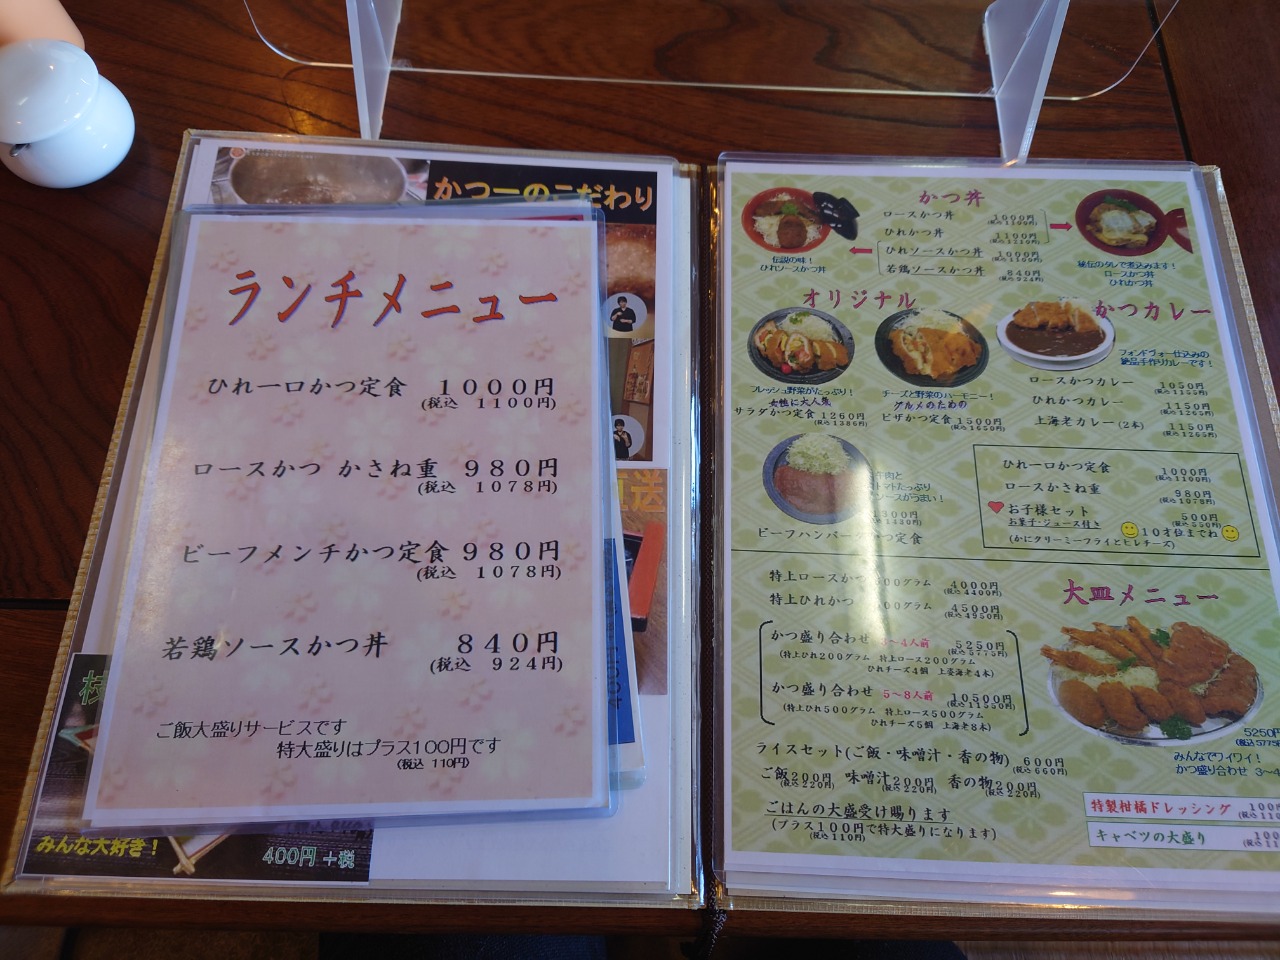 かつ一のこだわり
ランチメニュー
ひれ一口かつ定食 1000円
(税込 1100円)
ロースかつ かさね重 980円
(税込 1078円)
ビーフメンチかつ定食 980円
(税込 1078円)
若鶏ソースかつ丼 840円
(税込 924円)
ご飯大盛りサービスです
特大盛りはプラス100円です
(税込 110円)
直送
みんな大好き!
400円+税
かつ丼
ロースかつ丼 1000円
(税込1100円)
ひれかつ丼 1100円
(税込1210円)
ひれソースかつ丼 1000円
(税込1100円)
若鶏ソースかつ丼 840円
(税込924円)
伝説の味!
ひれソースかつ丼
秘伝のタレで煮込みます!
ロースかつ丼
ひれかつ丼
オリジナル
フレッシュ野菜がたっぷり!
女性に大人気
サラダかつ定食 1260円
(税込1386円)
チーズと野菜のハーモニー!
グルメのための
ピザかつ定食 1500円
(税込1650円)
かつカレー
フォンドヴォー仕込みの
絶品手作りカレーです!
ロースかつカレー 1050円
(税込1155円)
ひれかつカレー 1150円
(税込1265円)
上海老カレー(2本) 1150円
(税込1265円)
牛肉と
トマトたっぷり
ソースがうまい!
1300円
(税込1430円)
ビーフハンバーグかつ定食
ひれ一口かつ定食 1000円
(税込1100円)
ロースかさね重 980円
(税込1078円)
お子様セット 500円
(税込550円)
お菓子・ジュース付き
10才位までね
(かにクリーミーフライとヒレチーズ)
特上ロースかつ 00グラム 4000円
(税込4400円)
特上ひれかつ 00グラム 4500円
(税込4950円)
かつ盛り合わせ 3〜4人前 5250円
(税込5775円)
(特上ひれ200グラム 特上ロース200グラム
ひれチーズ4個 上姿海老4本)
かつ盛り合わせ 5〜8人前 10500円
(税込11550円)
(特上ひれ500グラム 特上ロース500グラム
ひれチーズ5個 上海老8本)
ライスセット(ご飯・味噌汁・香の物) 600円
(税込660円)
ご飯200円 味噌汁200円 香の物200円
(税込220円) (税込220円) (税込220円)
ごはんの大盛受け賜ります
(プラス100円で特大盛りになります)
(税込110円)
大皿メニュー
5250円
(税込5775円
みんなでワイワイ!
かつ盛り合わせ 3〜4
特製柑橘ドレッシング 100
キャベツの大盛り 100